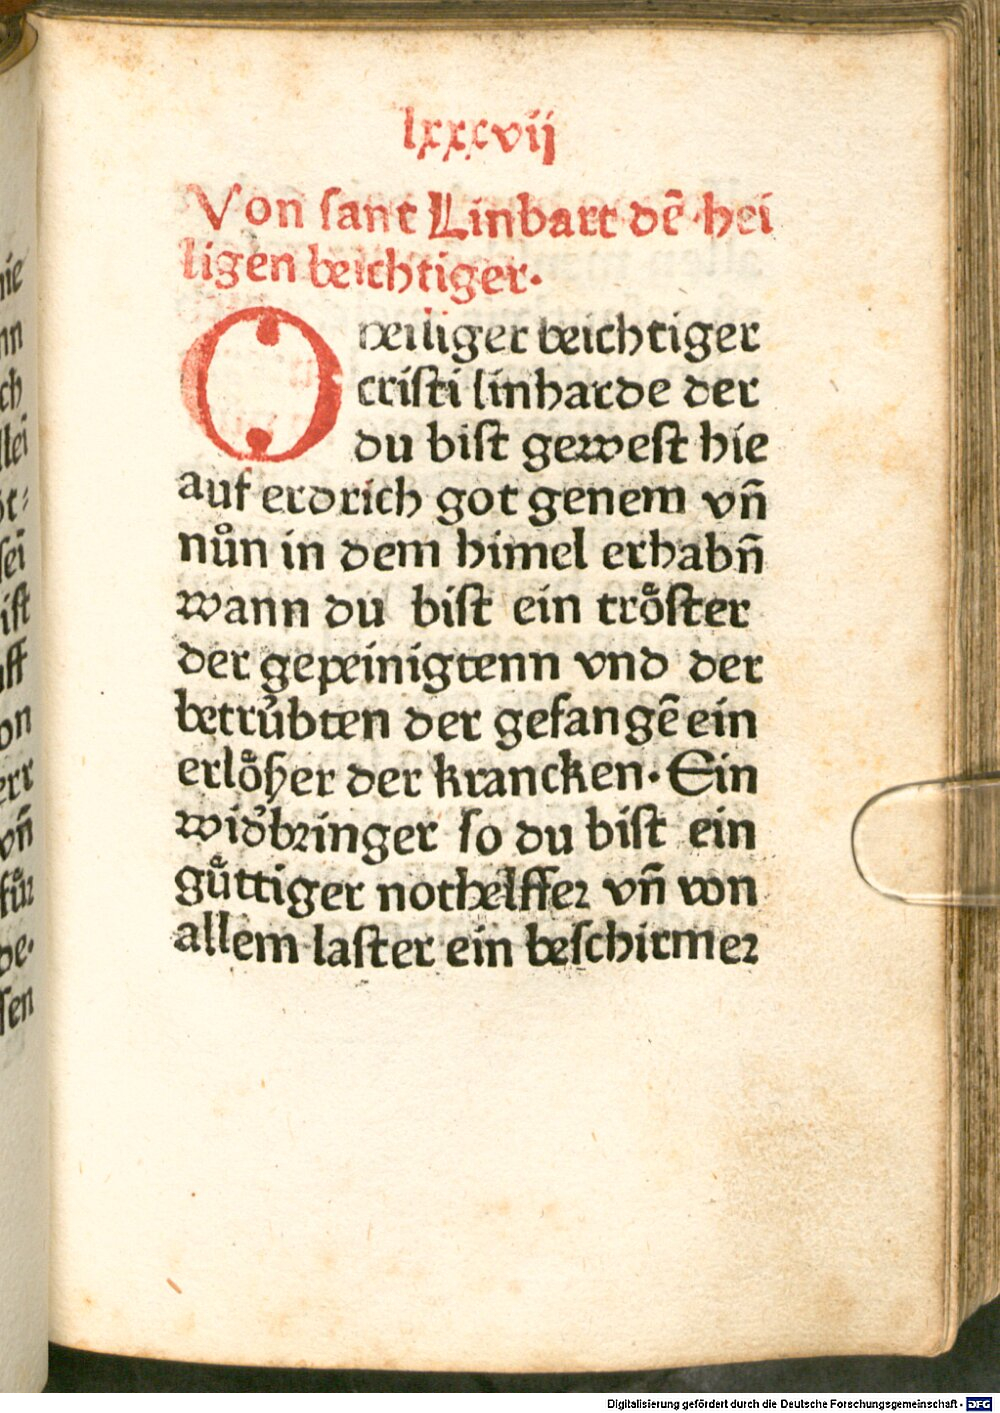 lxxxvij
Von sant Linhart dē hei
ligen beichtiger.
O heiliger beichtiger
cristi linharde der
du bist gewest hie
auf erdrich got genem vñ
nůn in dem himel erhabñ
wann du bist ein trőster
der gepeinigtenn vnd der
betrůbten der gefangē ein
erlőßer der krancken. Ein
widbringer so du bist ein
gůttiger nothelffer vñ von
allem laster ein beschirmer
Digitalisierung gefördert durch die Deutsche Forschungsgemeinschaft - DFG